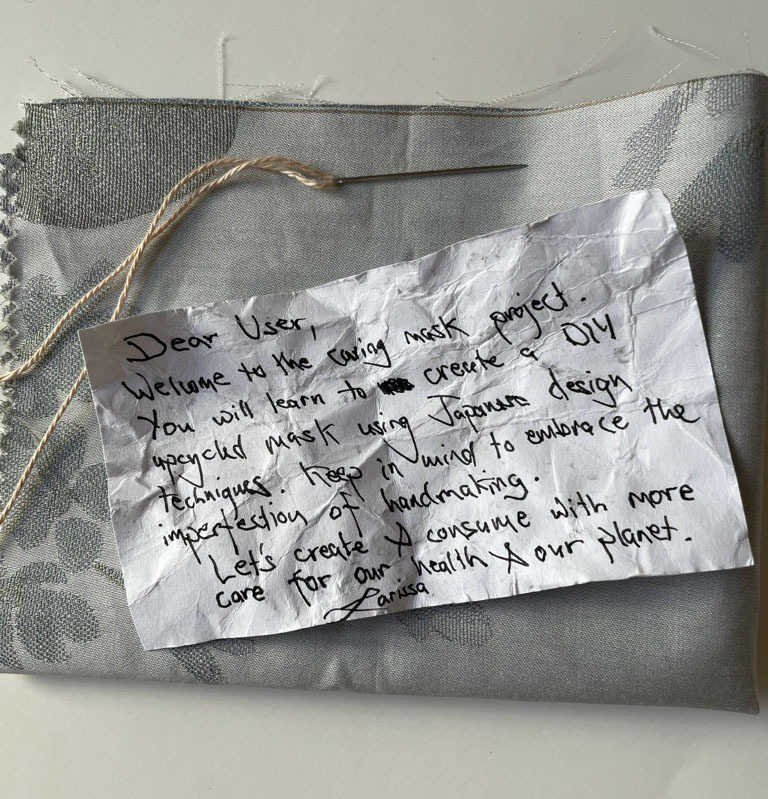 Dear User,
Welcome to the caring mask project.
You will learn to create a DIY
upcycled mask using Japanese design
techniques. Keep in mind to embrace the
imperfestion of handmaking.
Let's create & consume with more
care for our health & our planet.
Larissa